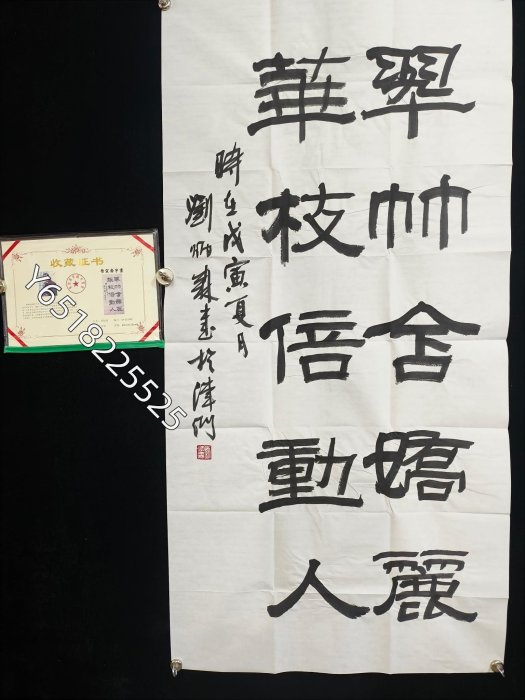 翠竹含嬌麗
華枝倍動人
時在戊寅夏月
劉炳森書於津門
收藏证书
Y6518225525